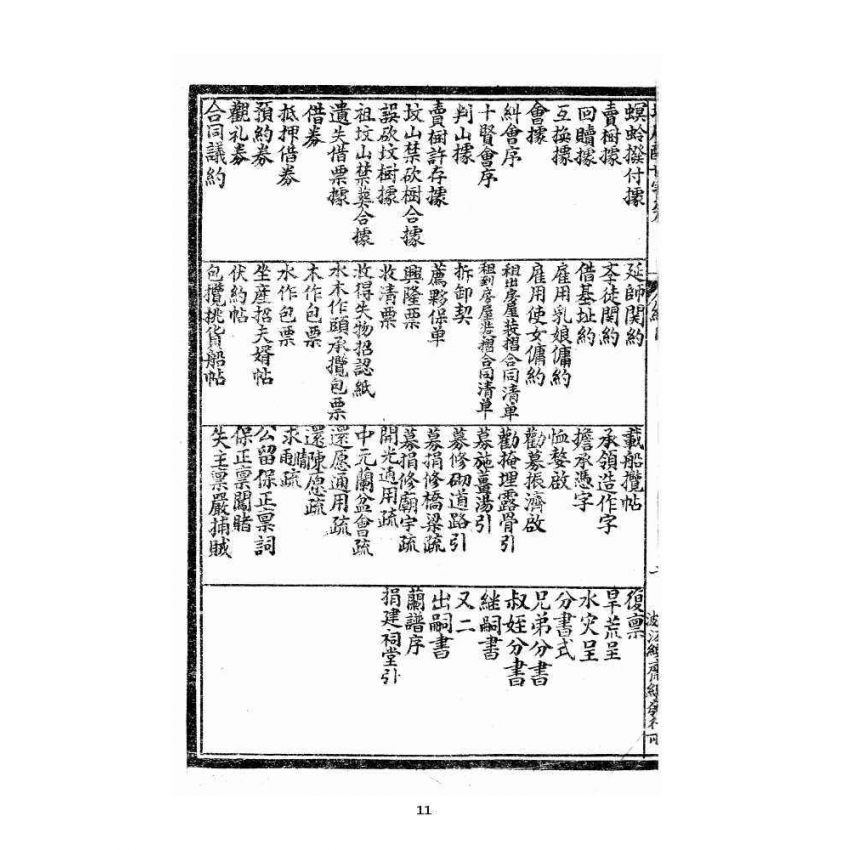 螟蛉撥付據
賣樹據
回贖據
互換據
會據
糾會序
十賢會序
判山據
賣樹許存據
坟山禁砍樹合據
誤砍坟樹據
祖坟山禁塟合據
遺失借票據
借券
抵押借券
預約券
觀礼券
合同議約
延師関約
夲徒関約
借基址約
雇用乳娘傭約
雇用使女傭約
租出房屋裝摺合同清单
租到房屋裝摺合同清单
拆卸契
薦夥保单
興隆票
收清票
收得失物招認紙
水木作頭承攬包票
木作包票
水作包票
坐産招夫婿帖
伏約帖
包攬挑貨船帖
載船攬帖
承領造作字
擔承憑字
恤嫠啟
勸募振濟啟
勸掩埋露骨引
募施薑湯引
募修砌道路引
募捐修橋梁疏
募捐修廟宇疏
開光適用疏
中元蘭盆會疏
還愿通用疏
還陳愿疏
求晴雨疏
公留保正禀詞
保正禀闖賭
失主禀嚴捕賊
復禀
旱荒呈
水灾呈
分書式
兄弟分書
叔姪分書
継嗣書
又二
出嗣書
蘭譜序
捐建祠堂引
11